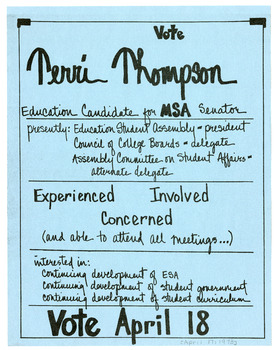 Vote
Terri Thompson
Education Candidate for MSA Senator
presently: Education Student Assembly = president
Council of College Boards = delegate
Assembly Committee on Student Affairs =
alternate delegate
Experienced Involved
Concerned
(and able to attend all meetings...)
interested in:
continuing development of ESA
continuing development of student government
continuing development of student curriculum
Vote April 18